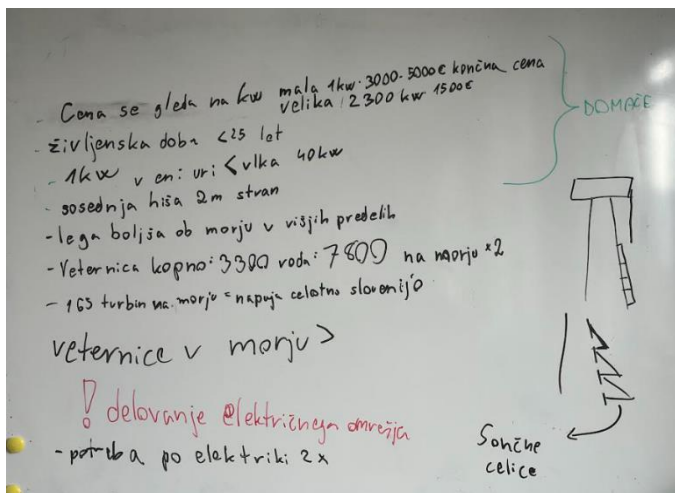 - Cena se gleda na kw mala 1kw · 3000-5000€ končna cena
velika: 2300 kw 1500€
- življenska doba <25 let
- 1kw v eni uri < vlka 40kw
- sosednja hiša 2m stran
- lega boljša ob morju v višjih predelih
- Veternica kopno: 3300 voda: 7800 na morju ×2
- 165 turbin na morju = napaja celotno slovenijo
veternice v morju >
! delovanje električnega omrežja
- potreba po elektriki 2x
DOMAČE
Sončne
celice